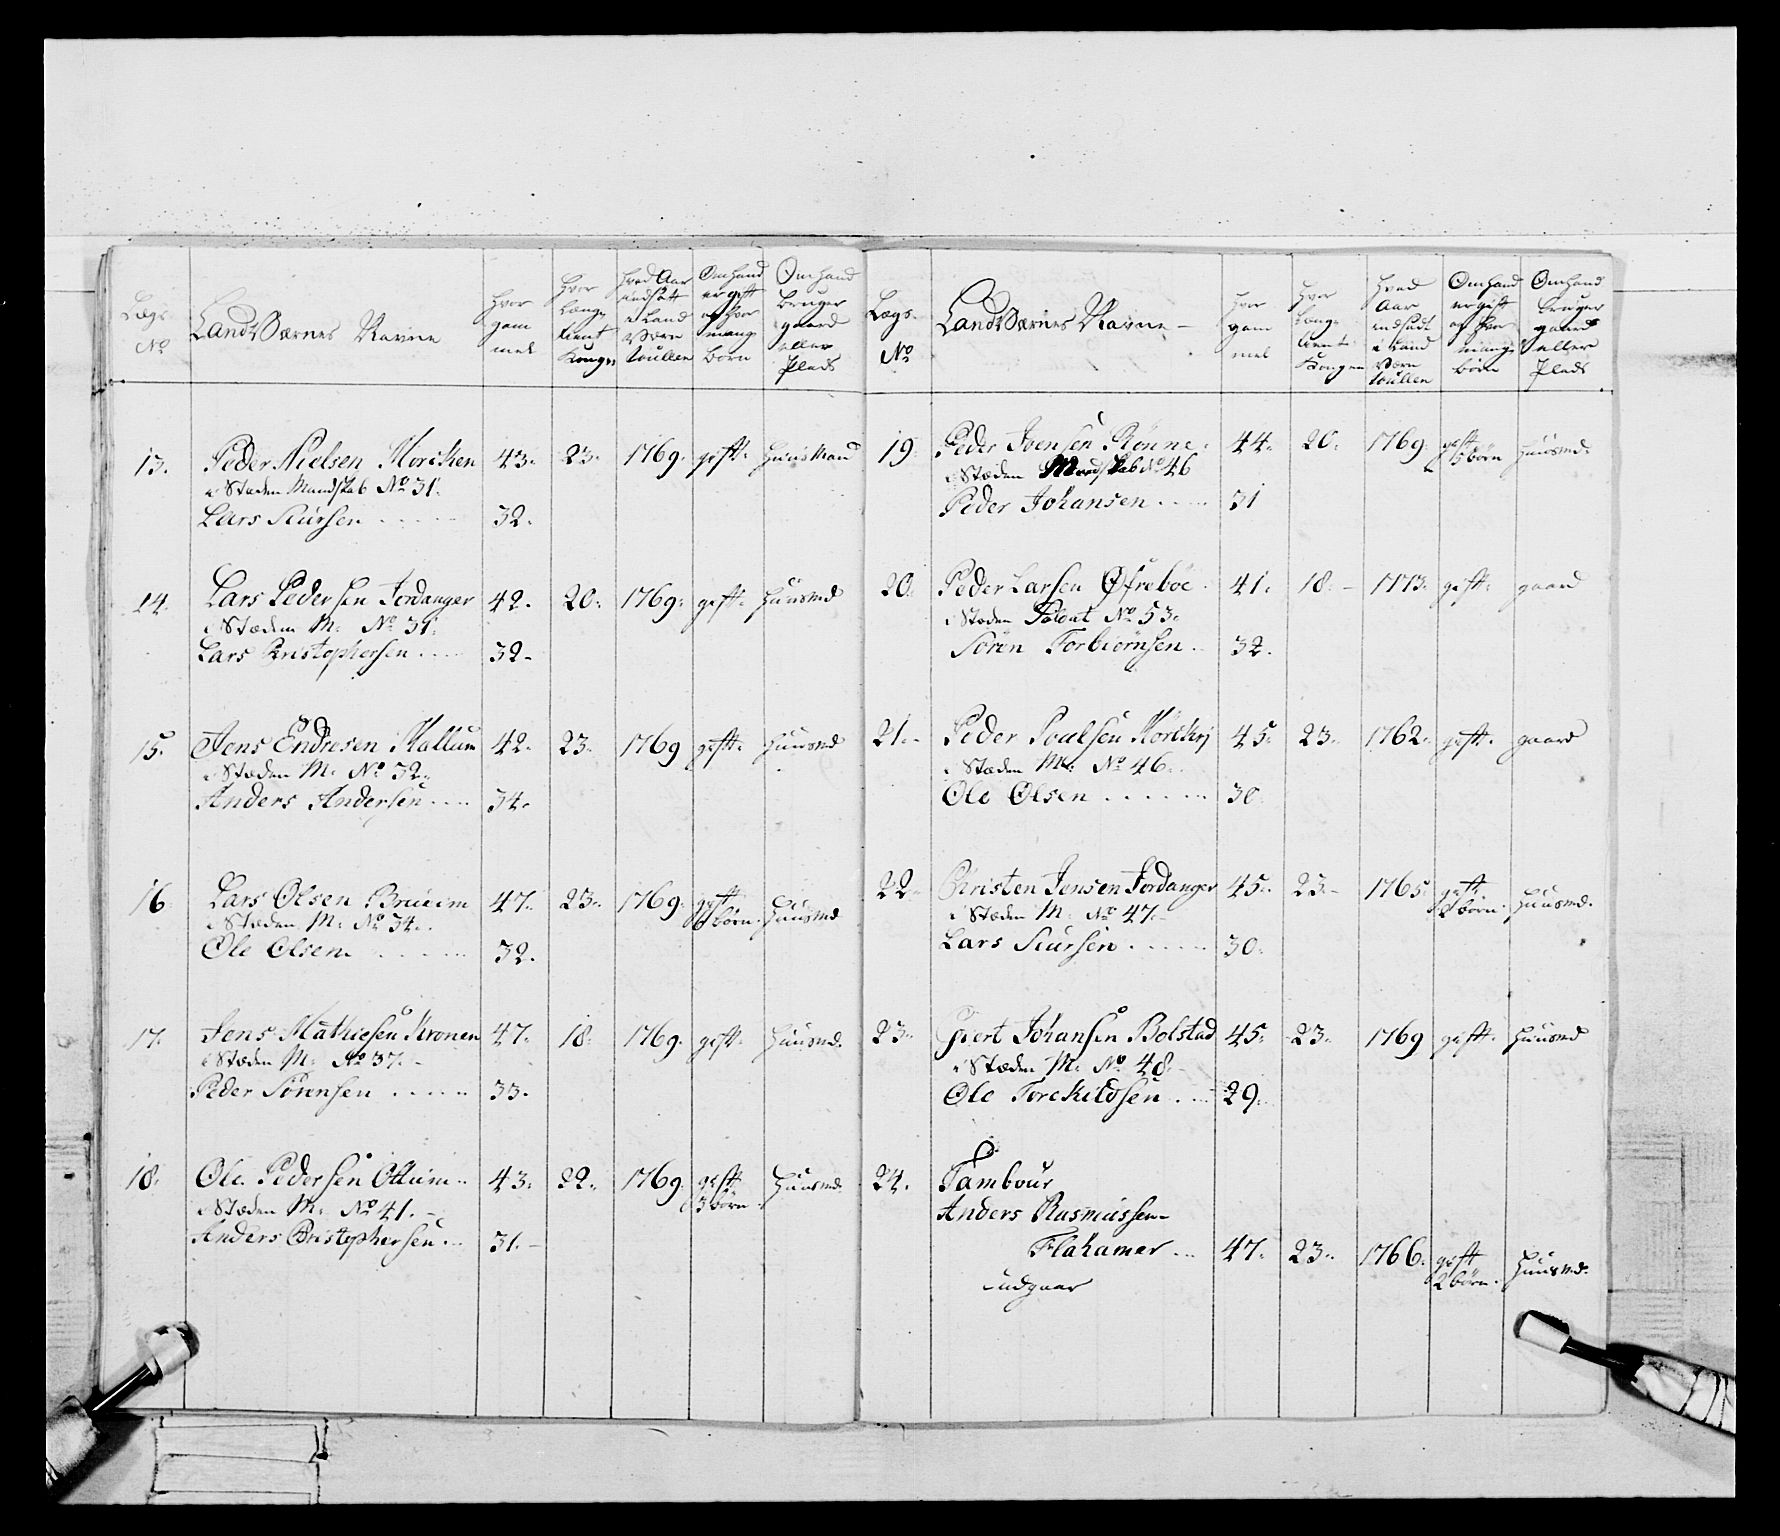 Lægs No
LandVærnes Navne
Hvor gam mel
Hvor længe tient Kongen
Hvad Aar indsatt i Land Værn Roullen
Om hand er gift og hvor mang børn
Om hand bruger gaard eller Plads
13. Peder Nielsen Morchen 43. 23. 1769. gift. Huusmand
i Stæden Mandskab No 31.
Lars Siursen 32.
14. Lars Pedersen Jordanger 42. 20. 1769. gift. Huusmd
i Stæden M: No 31.
Lars Christophersen 32.
15. Jens Endresen Kallum 42. 23. 1769 gift. Huusmd
i Stæden M: No 32.
Anders Andersen 34.
16. Lars Olsen Bruiim 47. 23. 1769. gift børn. Huusmd
i Stæden M: No 34.
Ole Olsen 32.
17. Jens Mathiesen Kronen 47. 18. 1769. gift. Huusmd.
i Stæden M: No 37.
Peder Sørensen 33.
18. Ole Pedersen Ottum 43. 22. 1769. gift 3 børn. Huusmd.
i Stæden M: No 41.
Anders Christophersen 31.
Lægs. No
LandVærnes Navne
Hvor gam mel
Hvor længe tient Kongen
Hvad Aar indsadt i Land Værn Roullen
Om hand er gift og hvor mange børn
Om hand bruger gaard eller Plads
19. Peder Joensen Rønne 44. 20. 1769. gift børn Huusmd.
i Stæden Mandskab No 46
Peder Johansen 31
20. Peder Larsen Øfrebøe 41. 18. 1773. gift. gaard
i Stæden Soldat No 53.
Søren Torbiørnsen 32.
21. Peder Poulsen 45. 23. 1762. gift. gaard
i Stæden M: No 46.
Ole Olsen 30.
22. Christen Jensen Jordanger 45. 23. 1765 gift 2 børn. Huusmd.
i Stæden M: No 47.
Lars Siursen 30.
23. Giert Johansen Bolstad 45. 23. 1769 gift. Huusmd
i Stæden M: No 48.
Ole Torckildsen 29.
24. Tambour
Anders Rasmussen
Flahamer 47. 23. 1766. gift 2 børn. Huusmd.
udgaar